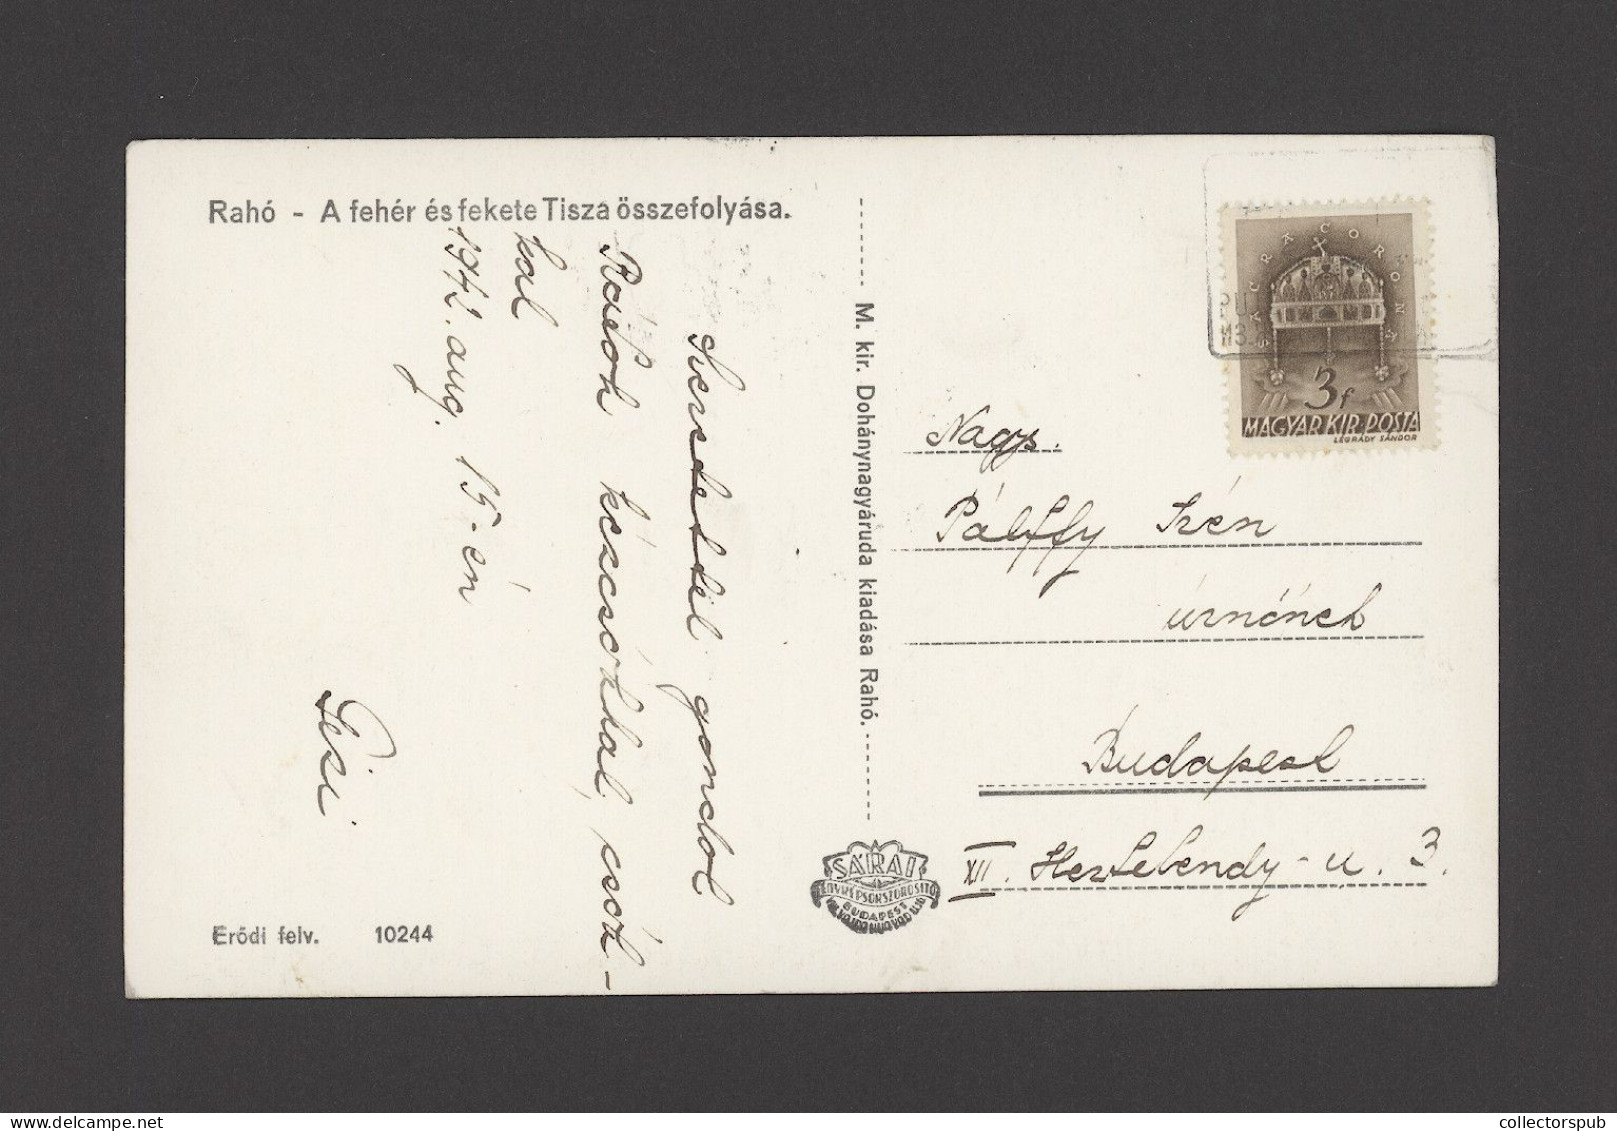 Rahó - A fehér és fekete Tisza összefolyása.
Szeretettel gondol
Rátok kézcsókkal, csók-
kal
1942. aug. 15-én
Gisi
Erődi felv. 10244
M. kir. Dohánynagyáruda kiadása Rahó.
SÁRAI
FÉNYKÉPSOKSZOROSITÓ
BUDAPEST
SACRA CORONA
3f
MAGYAR KIR. POSTA
LÉGRÁDY SÁNDOR
Nagys.
Pálffy
úrnőnek
Budapest
XII. Hertelendy-u. 3.
collectorspub